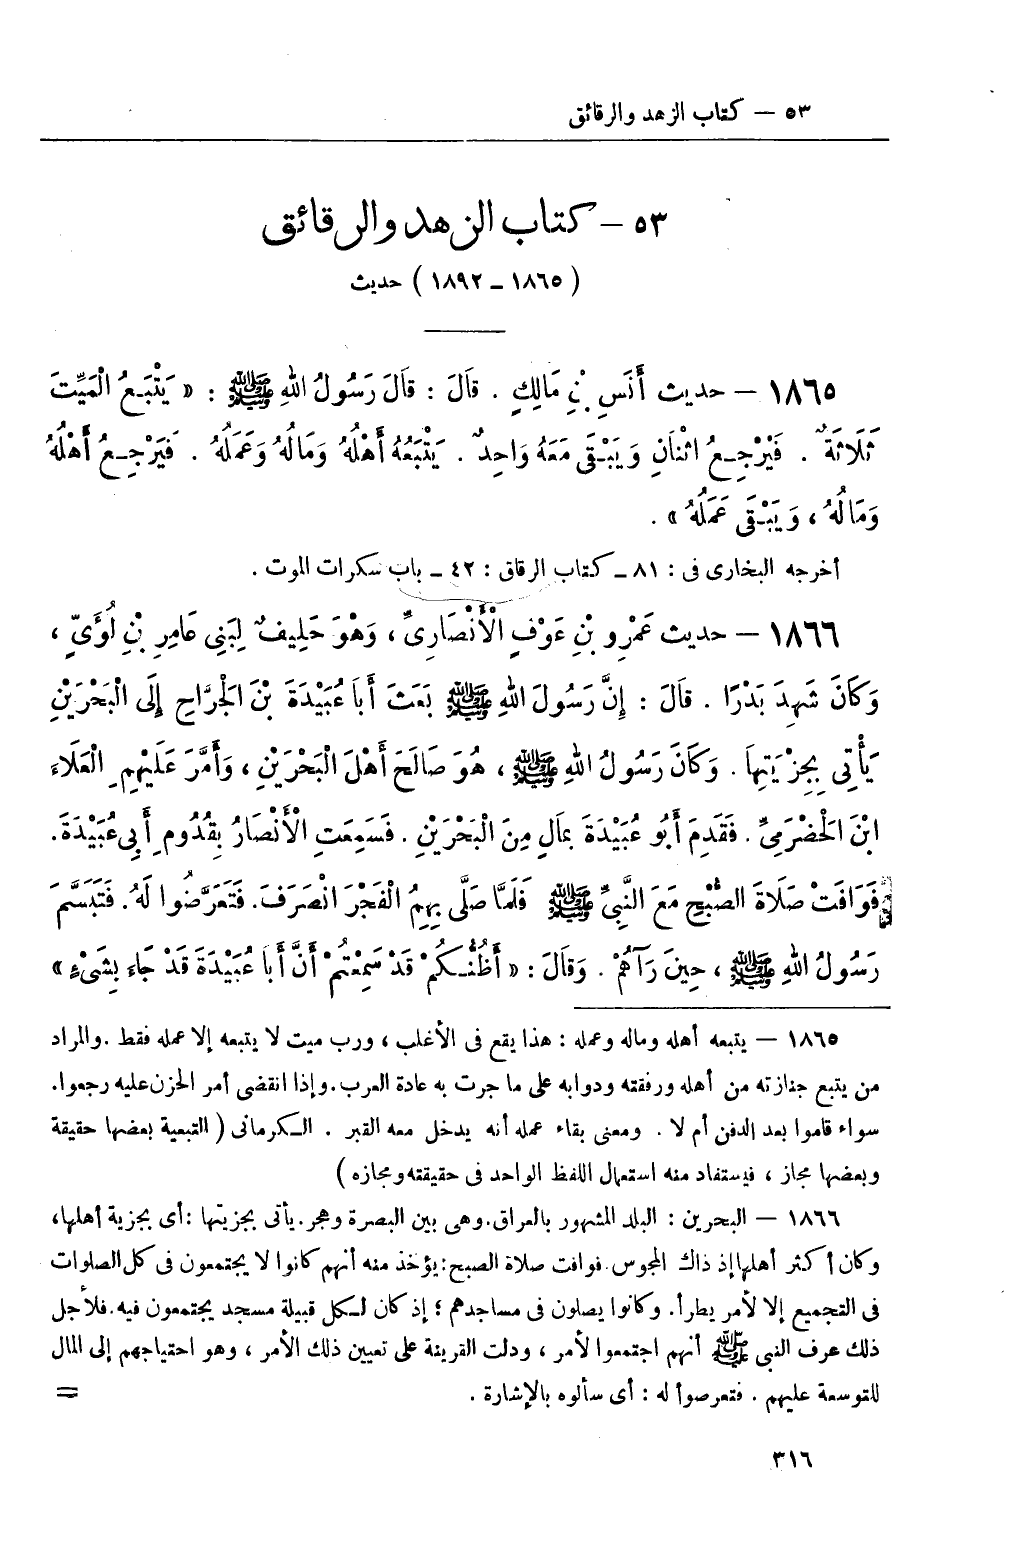 ٥٣ — كتاب الزهد والرقائق
٥٣ – كتاب الزهد والرقائق
( ١٨٦٥ – ١٨٩٢ ) حديث
١٨٦٥ — حديث أَنَسِ بْنِ مَالِكٍ . قَالَ : قَالَ رَسُولُ اللهِ ﷺ : « يَتْبَعُ الْمَيِّتَ
ثَلَاثَةٌ . فَيَرْجِعُ اثْنَانِ وَيَبْقَى مَعَهُ وَاحِدٌ . يَتْبَعُهُ أَهْلُهُ وَمَالُهُ وَعَمَلُهُ . فَيَرْجِعُ أَهْلُهُ
وَمَالُهُ ، وَيَبْقَى عَمَلُهُ » .
أخرجه البخارى فى : ٨١ – كتاب الرقاق : ٤٢ – باب سكرات الموت .
١٨٦٦ — حديث عَمْرِو بْنِ عَوْفٍ الْأَنْصَارِىِّ ، وَهُوَ حَلِيفٌ لِبَنِى عَامِرِ بْنِ لُؤَىٍّ ،
وَكَانَ شَهِدَ بَدْرًا . قَالَ : إِنَّ رَسُولَ اللهِ ﷺ بَعَثَ أَبَا عُبَيْدَةَ بْنَ الْجَرَّاحِ إِلَى الْبَحْرَيْنِ
يَأْتِى بِجِزْيَتِهَا . وَكَانَ رَسُولُ اللهِ ﷺ ، هُوَ صَالَحَ أَهْلَ الْبَحْرَيْنِ ، وَأَمَّرَ عَلَيْهِمِ الْعَلَاءَ
ابْنَ الْحَضْرَمِىِّ . فَقَدِمَ أَبُو عُبَيْدَةَ بِمَالٍ مِنَ الْبَحْرَيْنِ . فَسَمِعَتِ الْأَنْصَارُ بِقُدُومِ أَبِى عُبَيْدَةَ.
فَوَافَتْ صَلَاةَ الصُّبْحِ مَعَ النَّبِىِّ ﷺ فَلَمَّا صَلَّى بِهِمُ الْفَجْرَ انْصَرَفَ. فَتَعَرَّضُوا لَهُ. فَتَبَسَّمَ
رَسُولُ اللهِ ﷺ ، حِينَ رَآهُمْ . وَقَالَ : « أَظُنُّكُمْ قَدْ سَمِعْتُمْ أَنَّ أَبَا عُبَيْدَةَ قَدْ جَاءَ بِشَىْءٍ »
١٨٦٥ — يتبعه أهله وماله وعمله : هذا يقع فى الأغلب ، ورب ميت لا يتبعه إلا عمله فقط .والمراد
من يتبع جنازته من أهله ورفقته ودوابه على ما جرت به عادة العرب.وإذا انقضى أمر الحزن عليه رجعوا.
سواء قاموا بعد الدفن أم لا . ومعنى بقاء عمله أنه يدخل معه القبر . الكرمانى ( التبعية بعضها حقيقة
وبعضها مجاز ، فيستفاد منه استعمال اللفظ الواحد فى حقيقته ومجازه )
١٨٦٦ — البحرين : البلد المشهور بالعراق.وهى بين البصرة وهجر.يأتى بجزيتها :أى بجزية أهلها،
وكان أكثر أهلها إذ ذاك المجوس.فوافت صلاة الصبح:يؤخذ منه أنهم كانوا لا يجتمعون فى كل الصلوات
فى التجميع إلا لأمر يطرأ. وكانوا يصلون فى مساجدهم ؛ إذ كان لكل قبيلة مسجد يجتمعون فيه.فلأجل
ذلك عرف النبى ﷺ أنهم اجتمعوا لأمر ، ودلت القرينة على تعيين ذلك الأمر ، وهو احتياجهم إلى المال
للتوسعة عليهم . فتعرضوا له : أى سألوه بالإشارة .
=
٣١٦